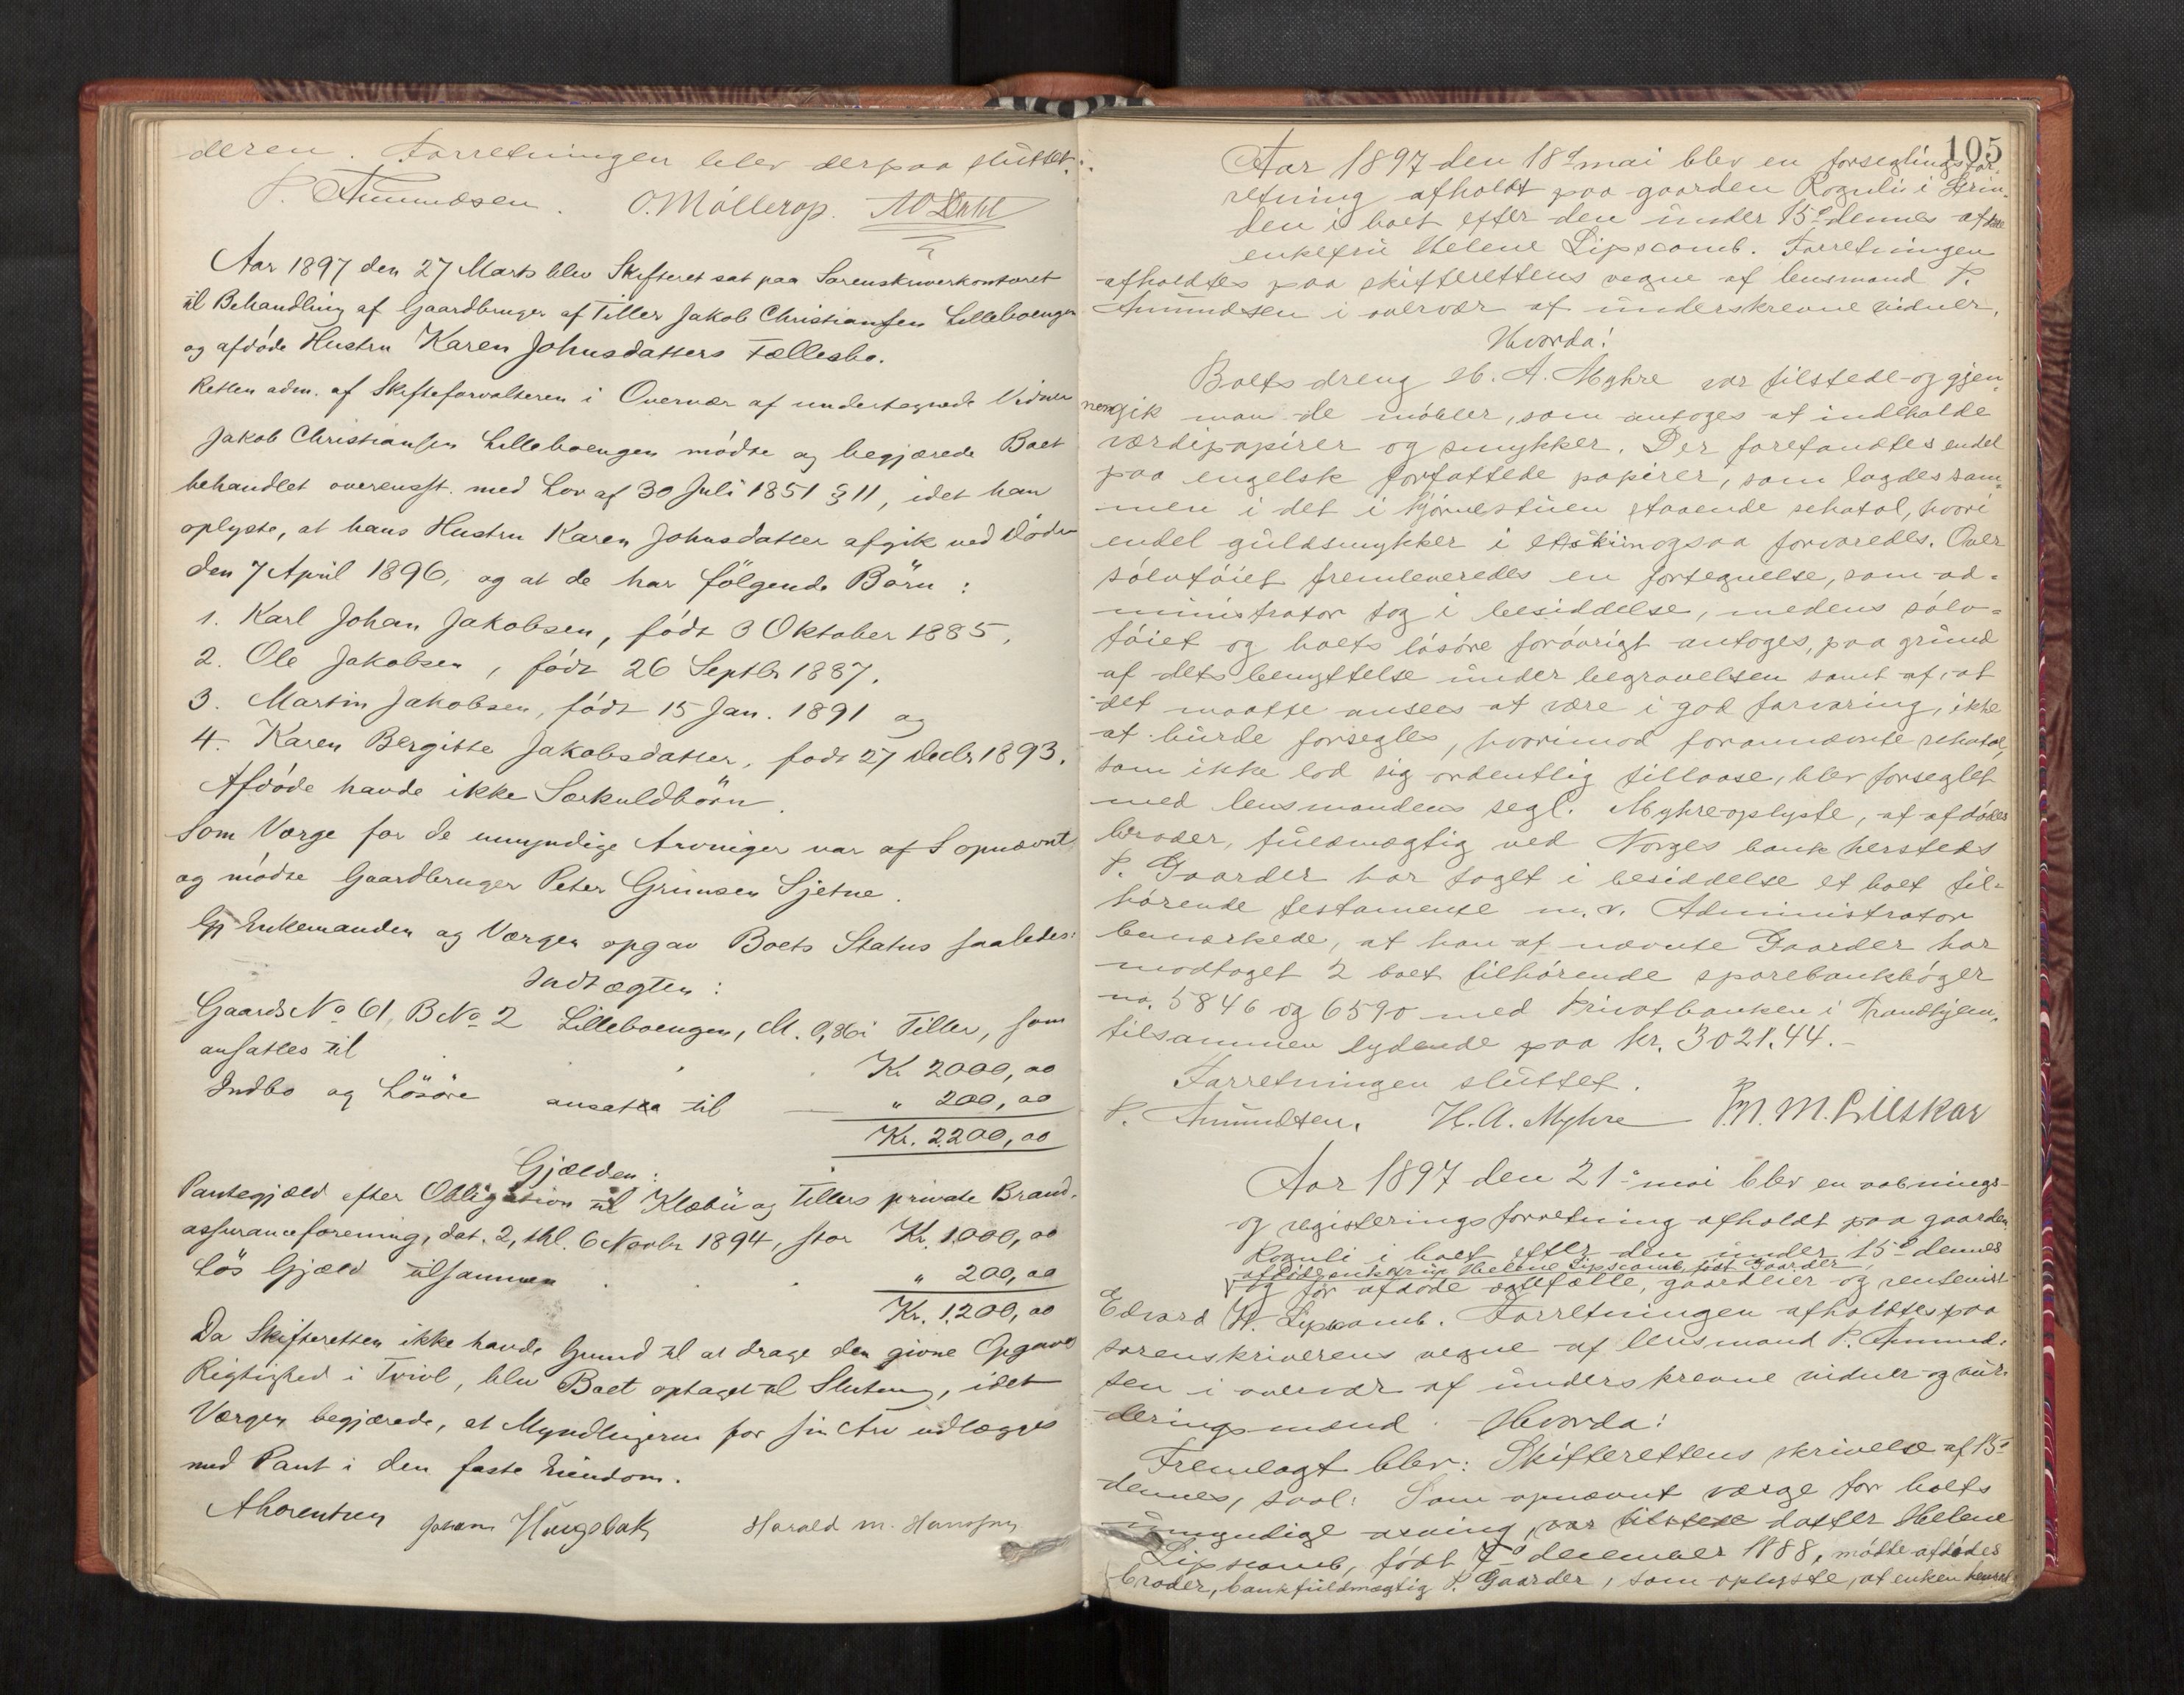 deren. Forretningen blev derpaa sluttet.
P. Amundsen. O. Möllerop. M Dahl
Aar 1897 den 27 Marts blev Skifteret sat paa Sorenskriverkontoret
til Behandling af Gaardbruger af Tiller Jakob Christiansen Lilleboengen
og afdöde Hustru Karen Johnsdatters Fællesbo.
Retten adm. af Skifteforvalteren i Overvær af undertegnede Vidner
Jakob Christiansen Lilleboengen mödte og begjærede Boet
behandlet overensst. med Lov af 30 Juli 1851 § 11, idet han
oplyste, at hans Hustru Karen Johnsdatter afgik ved Döden
den 7 April 1896, og at de har fölgende Börn:
1. Karl Johan Jakobsen, födt 3 Oktober 1885.
2. Ole Jakobsen, födt 26 Septbr 1887.
3. Martin Jakobsen, födt 15 Jan. 1891 og
4. Karen Bergitte Jakobsdatter, födt 27 Decbr 1893.
Afdöde havde ikke Særkuldbörn.
Som Værge for de umyndige Arvinger var af S opnævnt
og mödte Gaardbruger Peter Grimsen Sjetne.
Enkemanden og Værgen opgav Boets Status saaledes:
Indtægten:
Gaards No 61, B No 2 Lilleboengen, M. 0,86 i Tiller, som
ansattes til Kr 2000,00
Indbo og Lösöre ansattes til " 200,00
Kr. 2200,00
Gjælden:
Pantegjæld efter Obligation til Klæbu og Tillers private Brand-
assuranceforening, dat. 2, thl. 6 Novbr 1894, stor Kr. 1000,00
Lös Gjæld tilsammen " 200,00
Kr. 1200,00
Da Skifteretten ikke havde Grund til at drage den givne Opgaves
Rigtighed i Tvivl, blev Boet optaget til Slutning, idet
Værgen begjærede, at Myndlingerne for sin Arv udlægges
med Pant i den faste Eiendom.
A Lorentzen Johan Haugsbak Harald M. Hansen
105
Aar 1897 den 18de mai blev en forseglingsfor-
retning afholdt paa gaarden Roguli i Strin-
den i boet efter den under 15de dennes afdöde
enkefru Helene Lipscomb. Forretningen
afholdtes paa skifterettens vegne af lensmand P.
Amundsen i overvær af underskrevne vidner.
Hvorda:
Boets dreng H. A. Myhre var tilstede og gjen-
nemgik man de möbler, som antoges at indeholde
værdipapirer og smykker. Der forefandtes endel
paa engelsk forfattede papirer, som lagdes sam-
men i det i hjörnestuen staaende schatol, hvori
endel guldsmykker i et skrin ogsaa forvaredes. Over
sölvtöiet fremleveredes en fortegnelse, som ad-
ministrator tog i besiddelse, medens sölv-
töiet og boets lösöre forövrigt antoges, paa grund
af dets benyttelse under begravelsen samt af, at
det maatte ansees at være i god forvaring, ikke
at burde forsegles, hvorimod forannævnte schatol,
som ikke lod sig ordentlig tillaase, blev forseglet
med lensmandens segl. Myhre oplyste, at afdödes
broder, fuldmægtig ved Norges bank hersteds
P. Gaarder har taget i besiddelse et boet til-
hörende testamente m. v. Administrator
bemærkede, at han af nævnte Gaarder har
modtaget 2 boet tilhörende sparebankböger
no. 5846 og 6590 med Privatbanken i Trondhjem,
tilsammen lydende paa kr. 3021.44.-
Forretningen sluttet.
P. Amundsen. H. A. Myhre M. Lillskar
Aar 1897 den 21de mai blev en aabnings-
og registeringsforretning afholdt paa gaarden
Roguli i boet efter den under 15de dennes
afdöde enkefru Helene Lipscomb födt Gaarder,
og för afdöde ægtefælle, gaardeier og rentenist
Edvard W. Lipscomb. Forretningen afholdtes paa
sorenskriverens vegne af lensmand P. Amund-
sen i overvær af underskrevne vidner og vur-
deringsmænd. Hvorda:
Fremlagt blev: Skifterettens skrivelse af 15de
dennes, saal: Som opnævnt værge for boets
umyndige arving, datter Helene
Lipscomb, födt 7de december 1888, mödte afdödes
broder, bankfuldmægtig P. Gaarder, som oplyste, at enken